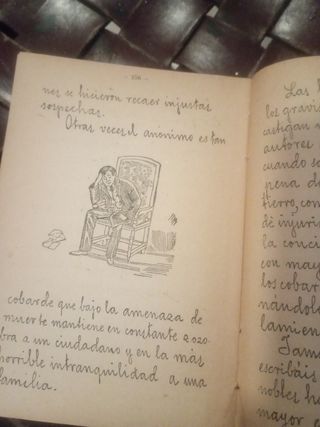 - 106 -
nes se hicieron recaer injustas
sospechas.
Otras veces el anónimo es tan
cobarde que bajo la amenaza de
muerte mantiene en constante zozo-
bra a un ciudadano y en la más
horrible intranquilidad a una
familia.
Las
los gravis
castigan
autores
cuando se
pena d
tierro, con
de injuri
la conci
con may
los cobar
nándol
lamien
Jamá
escribáis
nobles ha
mayor e